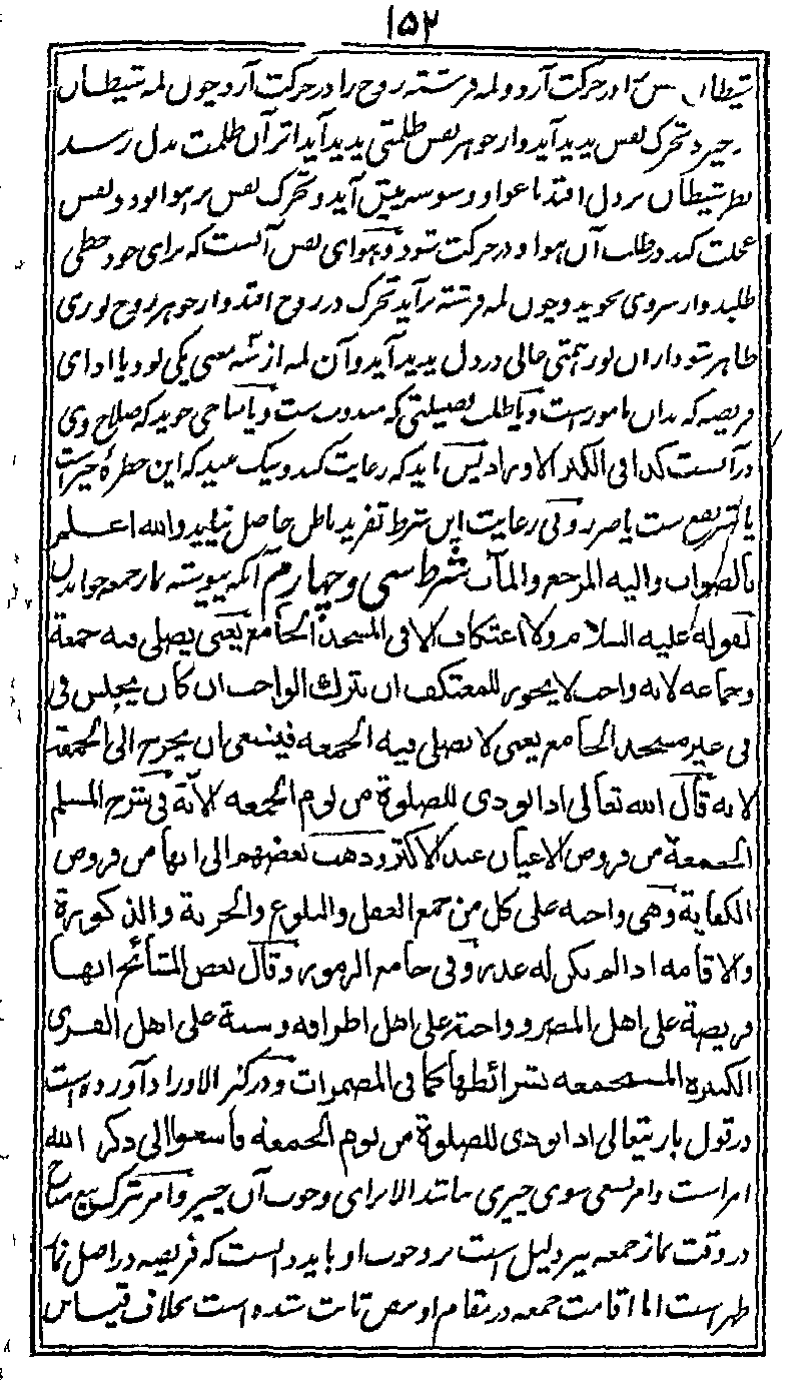 ۱۵۲
شیطان نفس را در حرکت آرد و لمه فرشته روح را در حرکت آرد چون لمه شیطان
تحرک نفس پدید آید و از جوهر نفس ظلمتی پدید آید اثر آن ظلمت بدل رسد
نظر شیطان بر دل افتد باغوا و وسوسه پیش آید و تحرک نفس بر هوا بود و نفس
عجلت کند در طلب آن هوا و در حرکت شود و هوای نفس آنست که برای خود حظی
طلبد و آرزوی بجوید و چون لمه فرشته برآید تحرک در روح افتد و از جوهر روح نوری
ظاهر شود از آن نور همتی عالی در دل پدید آید و آن لمه از سه معنی یکی بود یا ادای
فریضه که بدان مامورست و یا طلب فضیلتی که مندوبست و یا مباحی جوید که صلاح وی
در آنست کذا فی الکنز الاوراد پس باید که رعایت کند و نیک بیند که این خطره خیرست
یا شر نفع ست یا ضرر و بی رعایت این شرط تفرید باطن حاصل نیاید والله اعلم
بالصواب والیه المرجع والمآب شرط سی و چهارم آنکه پیوسته نماز جمعه خواندن
لقوله علیه السلام ولا اعتکاف الا فی المسجد الجامع یعنی یصلی فیه جمعة
وجماعه لانه واجب لا یجوز للمعتکف ان یترک الواجب ان کان یجلس فی
فی غیر مسجد الجامع یعنی لا یصلی فیه الجمعه فینبغی ان یخرج الی الجمعة
لانه قال الله تعالی اذا نودی للصلوة من یوم الجمعه لانه فی شرح المسلم
الجمعة من فروض الاعیان عند الاکثر وذهب بعضهم الی انها من فروض
الکفایة وهی واجبه علی کل من جمع العقل والبلوغ والحریة والذکورة
والاقامه اذا لم یکن له عذر وفی جامع الرموز وقال بعض المشائخ انها
فریضة علی اهل المصر وواجبة علی اهل اطرافه وسنة علی اهل القری
الکبیره المستجمعه شرائطها کما فی المضمرات و در کنز الاوراد آورده است
در قول باریتعالی اذا نودی للصلوة من یوم الجمعه فاسعوا الی ذکر الله
امر است و امر بسعی سوی چیزی نباشد الا برای وجوب آن چیز و امر بترک بیع مباح
در وقت نماز جمعه نیز دلیل است بر وجوب او باید دانست که فریضه در اصل نماز
ظهر است اما اقامت جمعه در مقام او بنص ثابت شده است بخلاف قیاس